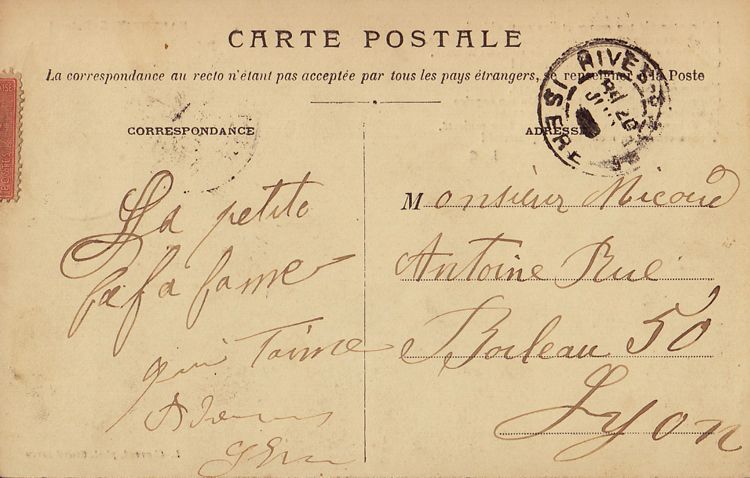 CARTE POSTALE
La correspondance au recto n'étant pas acceptée par tous les pays étrangers, se renseigner à la Poste
CORRESPONDANCE
ADRESSE
RIVES
ISERE
La petite
fafa fame
qui t'aime
Monsieur Micoud
Antoine Rue
Boileau 50
Lyon